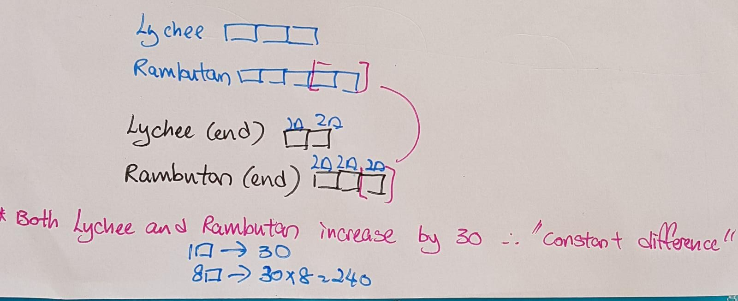 Lychee
Rambutan
2□ 2□
Lychee (end)
2□ 2□ 2□
Rambutan (end)
* Both Lychee and Rambutan increase by 30 ∴ "Constant difference"
1□ → 30
8□ → 30 x 8 = 240